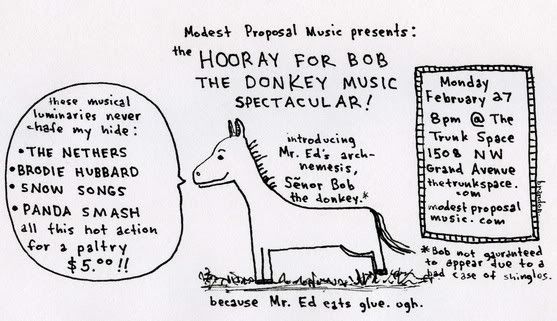 Modest Proposal Music presents:
the
HOORAY FOR BOB
THE DONKEY MUSIC
SPECTACULAR!
these musical
luminaries never
chafe my hide:
• THE NETHERS
• BRODIE HUBBARD
• SNOW SONGS
• PANDA SMASH
all this hot action
for a paltry
$5.00!!
introducing
Mr. Ed's arch-
nemesis,
Señor Bob
the donkey.*
Monday
February 27
8pm @ The
Trunk Space
1508 NW
Grand Avenue
thetrunkspace.
com
modestproposal
music.com
*Bob not gauranteed
to appear due to a
bad case of shingles.
because Mr. Ed eats glue. ugh.